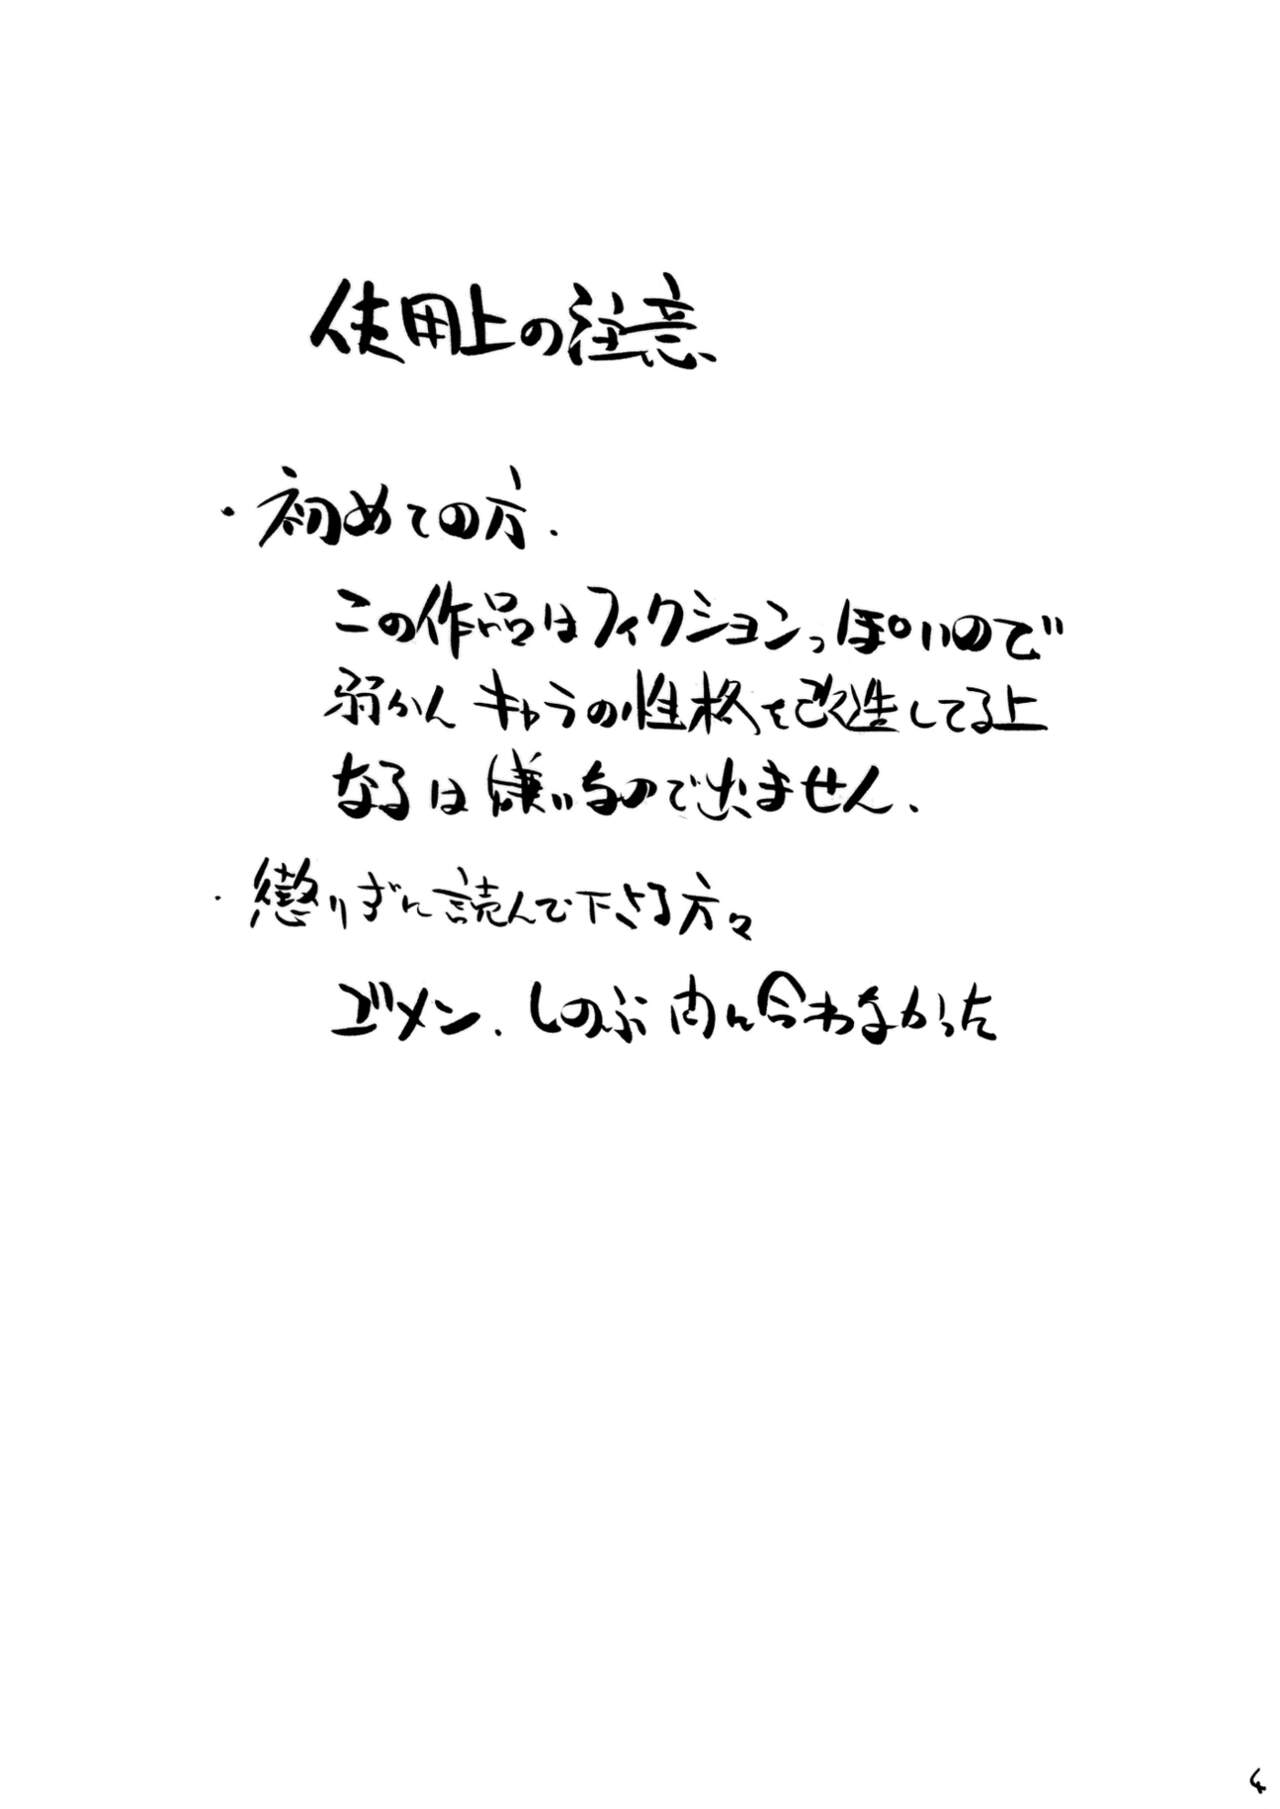 使用上の注意
・初めての方.
この作品はフィクションっぽいので
弱かん キャラの性格を改造してる上
なるは嫌いなので出ません.
・懲りずに読んで下さる方々
ゴメン. しのぶ 内に合わなかった
4